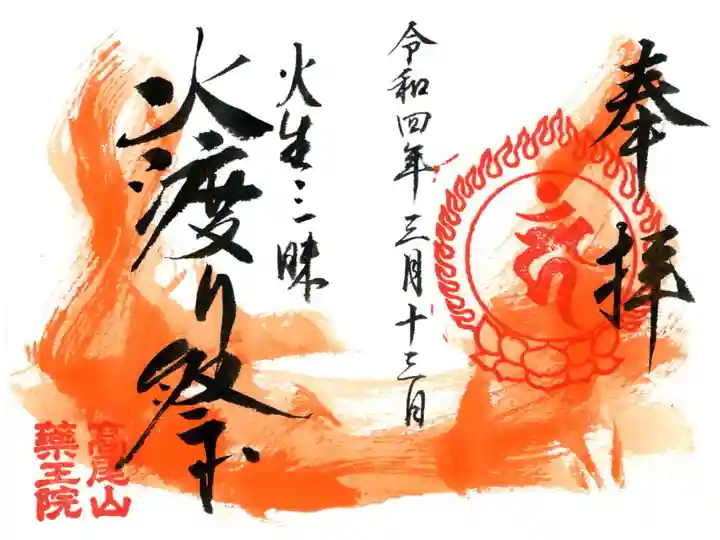 奉拝
令和四年三月十三日
火生三昧
火渡り祭
高尾山
藥王院